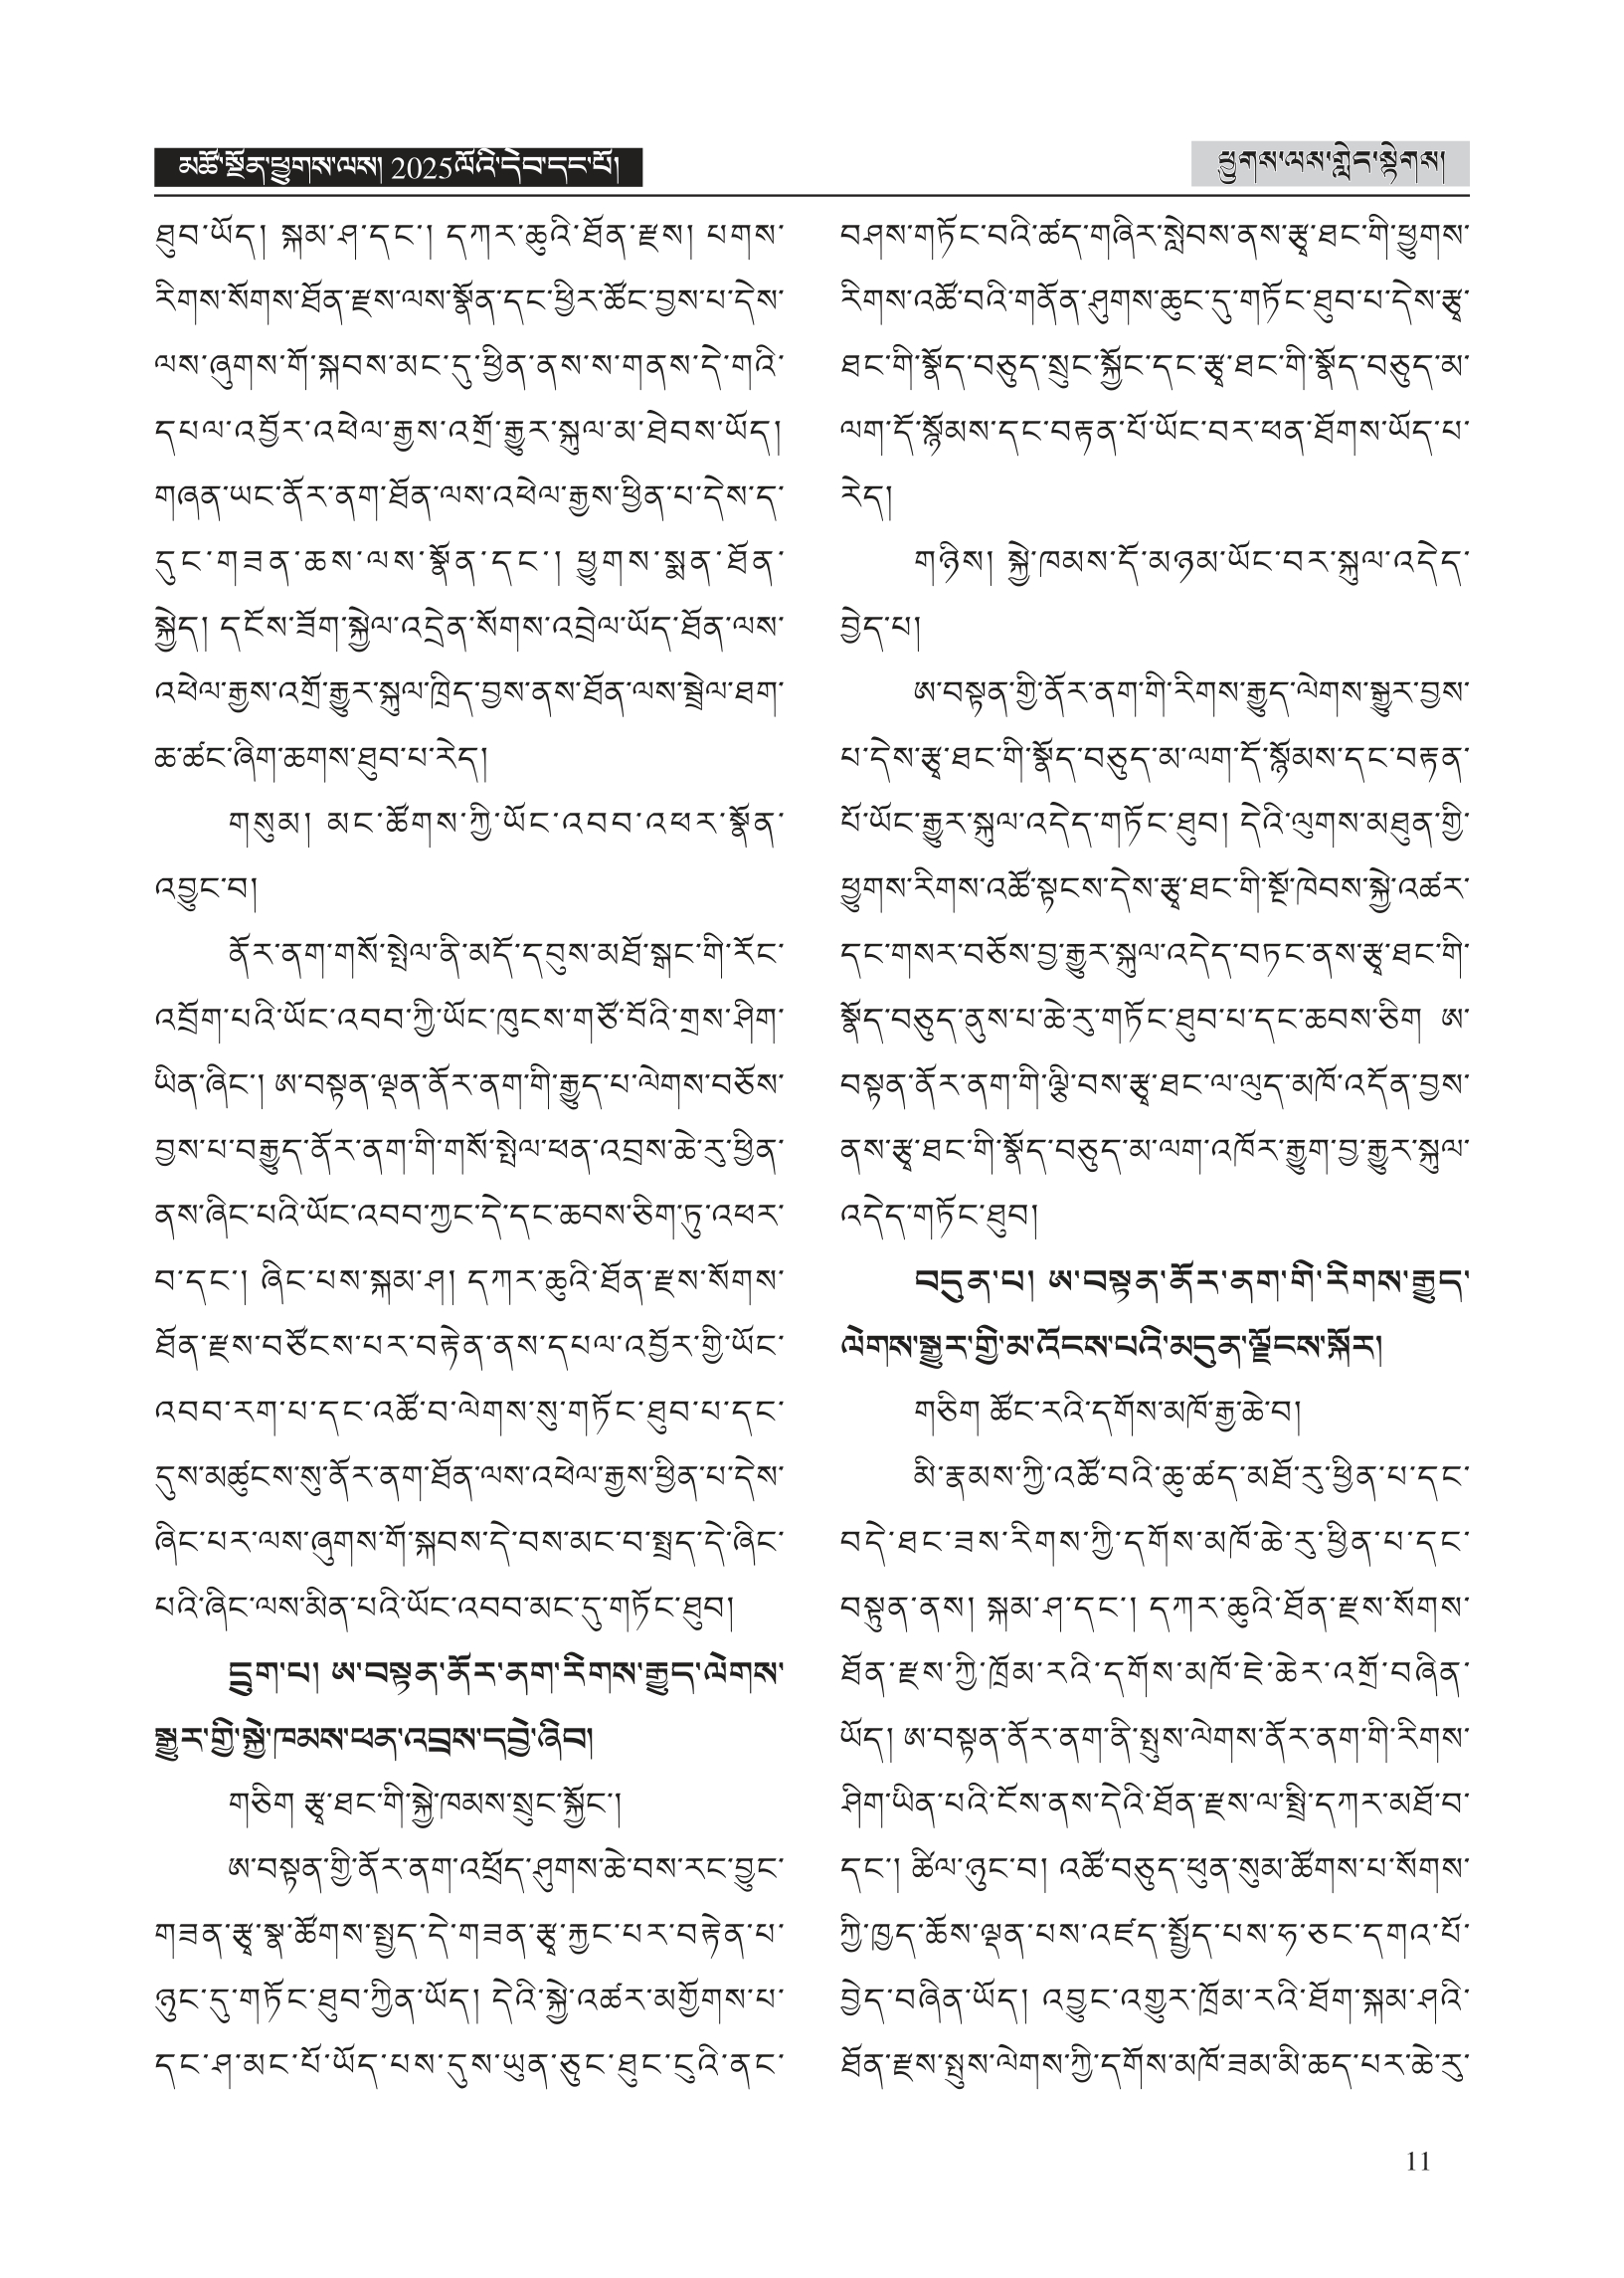 མཚོ་སྔོན་ཕྱུགས་ལས། 2025ལོའི་དེབ་དང་པོ།
ཕྱུགས་ལས་གླེང་སྟེགས།
ཐུབ་ཡོད། སྐམ་ཤ་དང་། དཀར་ཆུའི་ཐོན་རྫས། པགས་
རིགས་སོགས་ཐོན་རྫས་ལས་སྣོན་དང་ཕྱིར་ཚོང་བྱས་པ་དེས་
ལས་ཞུགས་གོ་སྐབས་མང་དུ་ཕྱིན་ནས་ས་གནས་དེ་གའི་
དཔལ་འབྱོར་འཕེལ་རྒྱས་འགྲོ་རྒྱུར་སྐུལ་མ་ཐེབས་ཡོད།
གཞན་ཡང་ནོར་ནག་ཐོན་ལས་འཕེལ་རྒྱས་ཕྱིན་པ་དེས་ད་
དུང་གཟན་ཆས་ལས་སྣོན་དང་། ཕྱུགས་སྨན་ཐོན་
སྐྱེད། དངོས་ཟོག་སྐྱེལ་འདྲེན་སོགས་འབྲེལ་ཡོད་ཐོན་ལས་
འཕེལ་རྒྱས་འགྲོ་རྒྱུར་སྐུལ་ཁྲིད་བྱས་ནས་ཐོན་ལས་སྦྲེལ་ཐག་
ཆ་ཚང་ཞིག་ཆགས་ཐུབ་པ་རེད།
གསུམ། མང་ཚོགས་ཀྱི་ཡོང་འབབ་འཕར་སྣོན་
འབྱུང་བ།
ནོར་ནག་གསོ་སྤེལ་ནི་མདོ་དབུས་མཐོ་སྒང་གི་རོང་
འབྲོག་པའི་ཡོང་འབབ་ཀྱི་ཡོང་ཁུངས་གཙོ་བོའི་གྲས་ཤིག་
ཡིན་ཞིང་། ཨ་བསྟན་ལྡན་ནོར་ནག་གི་རྒྱུད་པ་ལེགས་བཅོས་
བྱས་པ་བརྒྱུད་ནོར་ནག་གི་གསོ་སྤེལ་ཕན་འབྲས་ཆེ་རུ་ཕྱིན་
ནས་ཞིང་པའི་ཡོང་འབབ་ཀྱང་དེ་དང་ཆབས་ཅིག་ཏུ་འཕར་
བ་དང་། ཞིང་པས་སྐམ་ཤ། དཀར་ཆུའི་ཐོན་རྫས་སོགས་
ཐོན་རྫས་བཙོངས་པར་བརྟེན་ནས་དཔལ་འབྱོར་གྱི་ཡོང་
འབབ་རག་པ་དང་འཚོ་བ་ལེགས་སུ་གཏོང་ཐུབ་པ་དང་
དུས་མཚུངས་སུ་ནོར་ནག་ཐོན་ལས་འཕེལ་རྒྱས་ཕྱིན་པ་དེས་
ཞིང་པར་ལས་ཞུགས་གོ་སྐབས་དེ་བས་མང་བ་སྤྲད་དེ་ཞིང་
པའི་ཞིང་ལས་མིན་པའི་ཡོང་འབབ་མང་དུ་གཏོང་ཐུབ།
དྲུག་པ། ཨ་བསྟན་ནོར་ནག་རིགས་རྒྱུད་ལེགས་
སྒྱུར་གྱི་སྐྱེ་ཁམས་ཕན་འབྲས་དབྱེ་ཞིབ།
གཅིག རྩྭ་ཐང་གི་སྐྱེ་ཁམས་སྲུང་སྐྱོང་།
ཨ་བསྟན་གྱི་ནོར་ནག་འཕྲོད་ཤུགས་ཆེ་བས་རང་བྱུང་
གཟན་རྩྭ་སྣ་ཚོགས་སྤྱད་དེ་གཟན་རྩྭ་རྐྱང་པར་བརྟེན་པ་
ཉུང་དུ་གཏོང་ཐུབ་ཀྱིན་ཡོད། དེའི་སྐྱེ་འཚར་མགྱོགས་པ་
དང་ཤ་མང་པོ་ཡོད་པས་དུས་ཡུན་ཅུང་ཐུང་ངུའི་ནང་
བཤས་གཏོང་བའི་ཚད་གཞིར་སླེབས་ནས་རྩྭ་ཐང་གི་ཕྱུགས་
རིགས་འཚོ་བའི་གནོན་ཤུགས་ཆུང་དུ་གཏོང་ཐུབ་པ་དེས་རྩྭ་
ཐང་གི་སྣོད་བཅུད་སྲུང་སྐྱོང་དང་རྩྭ་ཐང་གི་སྣོད་བཅུད་མ་
ལག་དོ་སྙོམས་དང་བརྟན་པོ་ཡོང་བར་ཕན་ཐོགས་ཡོད་པ་
རེད།
གཉིས། སྐྱེ་ཁམས་དོ་མཉམ་ཡོང་བར་སྐུལ་འདེད་
བྱེད་པ།
ཨ་བསྟན་གྱི་ནོར་ནག་གི་རིགས་རྒྱུད་ལེགས་སྒྱུར་བྱས་
པ་དེས་རྩྭ་ཐང་གི་སྣོད་བཅུད་མ་ལག་དོ་སྙོམས་དང་བརྟན་
པོ་ཡོང་རྒྱུར་སྐུལ་འདེད་གཏོང་ཐུབ། དེའི་ལུགས་མཐུན་གྱི་
ཕྱུགས་རིགས་འཚོ་སྟངས་དེས་རྩྭ་ཐང་གི་སྔོ་ཁེབས་སྐྱེ་འཚར་
དང་གསར་བཅོས་བྱ་རྒྱུར་སྐུལ་འདེད་བཏང་ནས་རྩྭ་ཐང་གི་
སྣོད་བཅུད་ནུས་པ་ཆེ་རུ་གཏོང་ཐུབ་པ་དང་ཆབས་ཅིག ཨ་
བསྟན་ནོར་ནག་གི་ལྕི་བས་རྩྭ་ཐང་ལ་ལུད་མཁོ་འདོན་བྱས་
ནས་རྩྭ་ཐང་གི་སྣོད་བཅུད་མ་ལག་འཁོར་རྒྱུག་བྱ་རྒྱུར་སྐུལ་
འདེད་གཏོང་ཐུབ།
བདུན་པ། ཨ་བསྟན་ནོར་ནག་གི་རིགས་རྒྱུད་
ལེགས་སྒྱུར་གྱི་མ་འོངས་པའི་མདུན་ལྗོངས་སྐོར།
གཅིག ཚོང་རའི་དགོས་མཁོ་རྒྱ་ཆེ་བ།
མི་རྣམས་ཀྱི་འཚོ་བའི་ཆུ་ཚད་མཐོ་རུ་ཕྱིན་པ་དང་
བདེ་ཐང་ཟས་རིགས་ཀྱི་དགོས་མཁོ་ཆེ་རུ་ཕྱིན་པ་དང་
བསྟུན་ནས། སྐམ་ཤ་དང་། དཀར་ཆུའི་ཐོན་རྫས་སོགས་
ཐོན་རྫས་ཀྱི་ཁྲོམ་རའི་དགོས་མཁོ་ཇེ་ཆེར་འགྲོ་བཞིན་
ཡོད། ཨ་བསྟན་ནོར་ནག་ནི་སྤུས་ལེགས་ནོར་ནག་གི་རིགས་
ཤིག་ཡིན་པའི་ངོས་ནས་དེའི་ཐོན་རྫས་ལ་སྤྲི་དཀར་མཐོ་བ་
དང་། ཚིལ་ཉུང་བ། འཚོ་བཅུད་ཕུན་སུམ་ཚོགས་པ་སོགས་
ཀྱི་ཁྱད་ཆོས་ལྡན་པས་འཛད་སྤྱོད་པས་ཧ་ཅང་དགའ་པོ་
བྱེད་བཞིན་ཡོད། འབྱུང་འགྱུར་ཁྲོམ་རའི་ཐོག་སྐམ་ཤའི་
ཐོན་རྫས་སྤུས་ལེགས་ཀྱི་དགོས་མཁོ་ཟམ་མི་ཆད་པར་ཆེ་རུ་
11